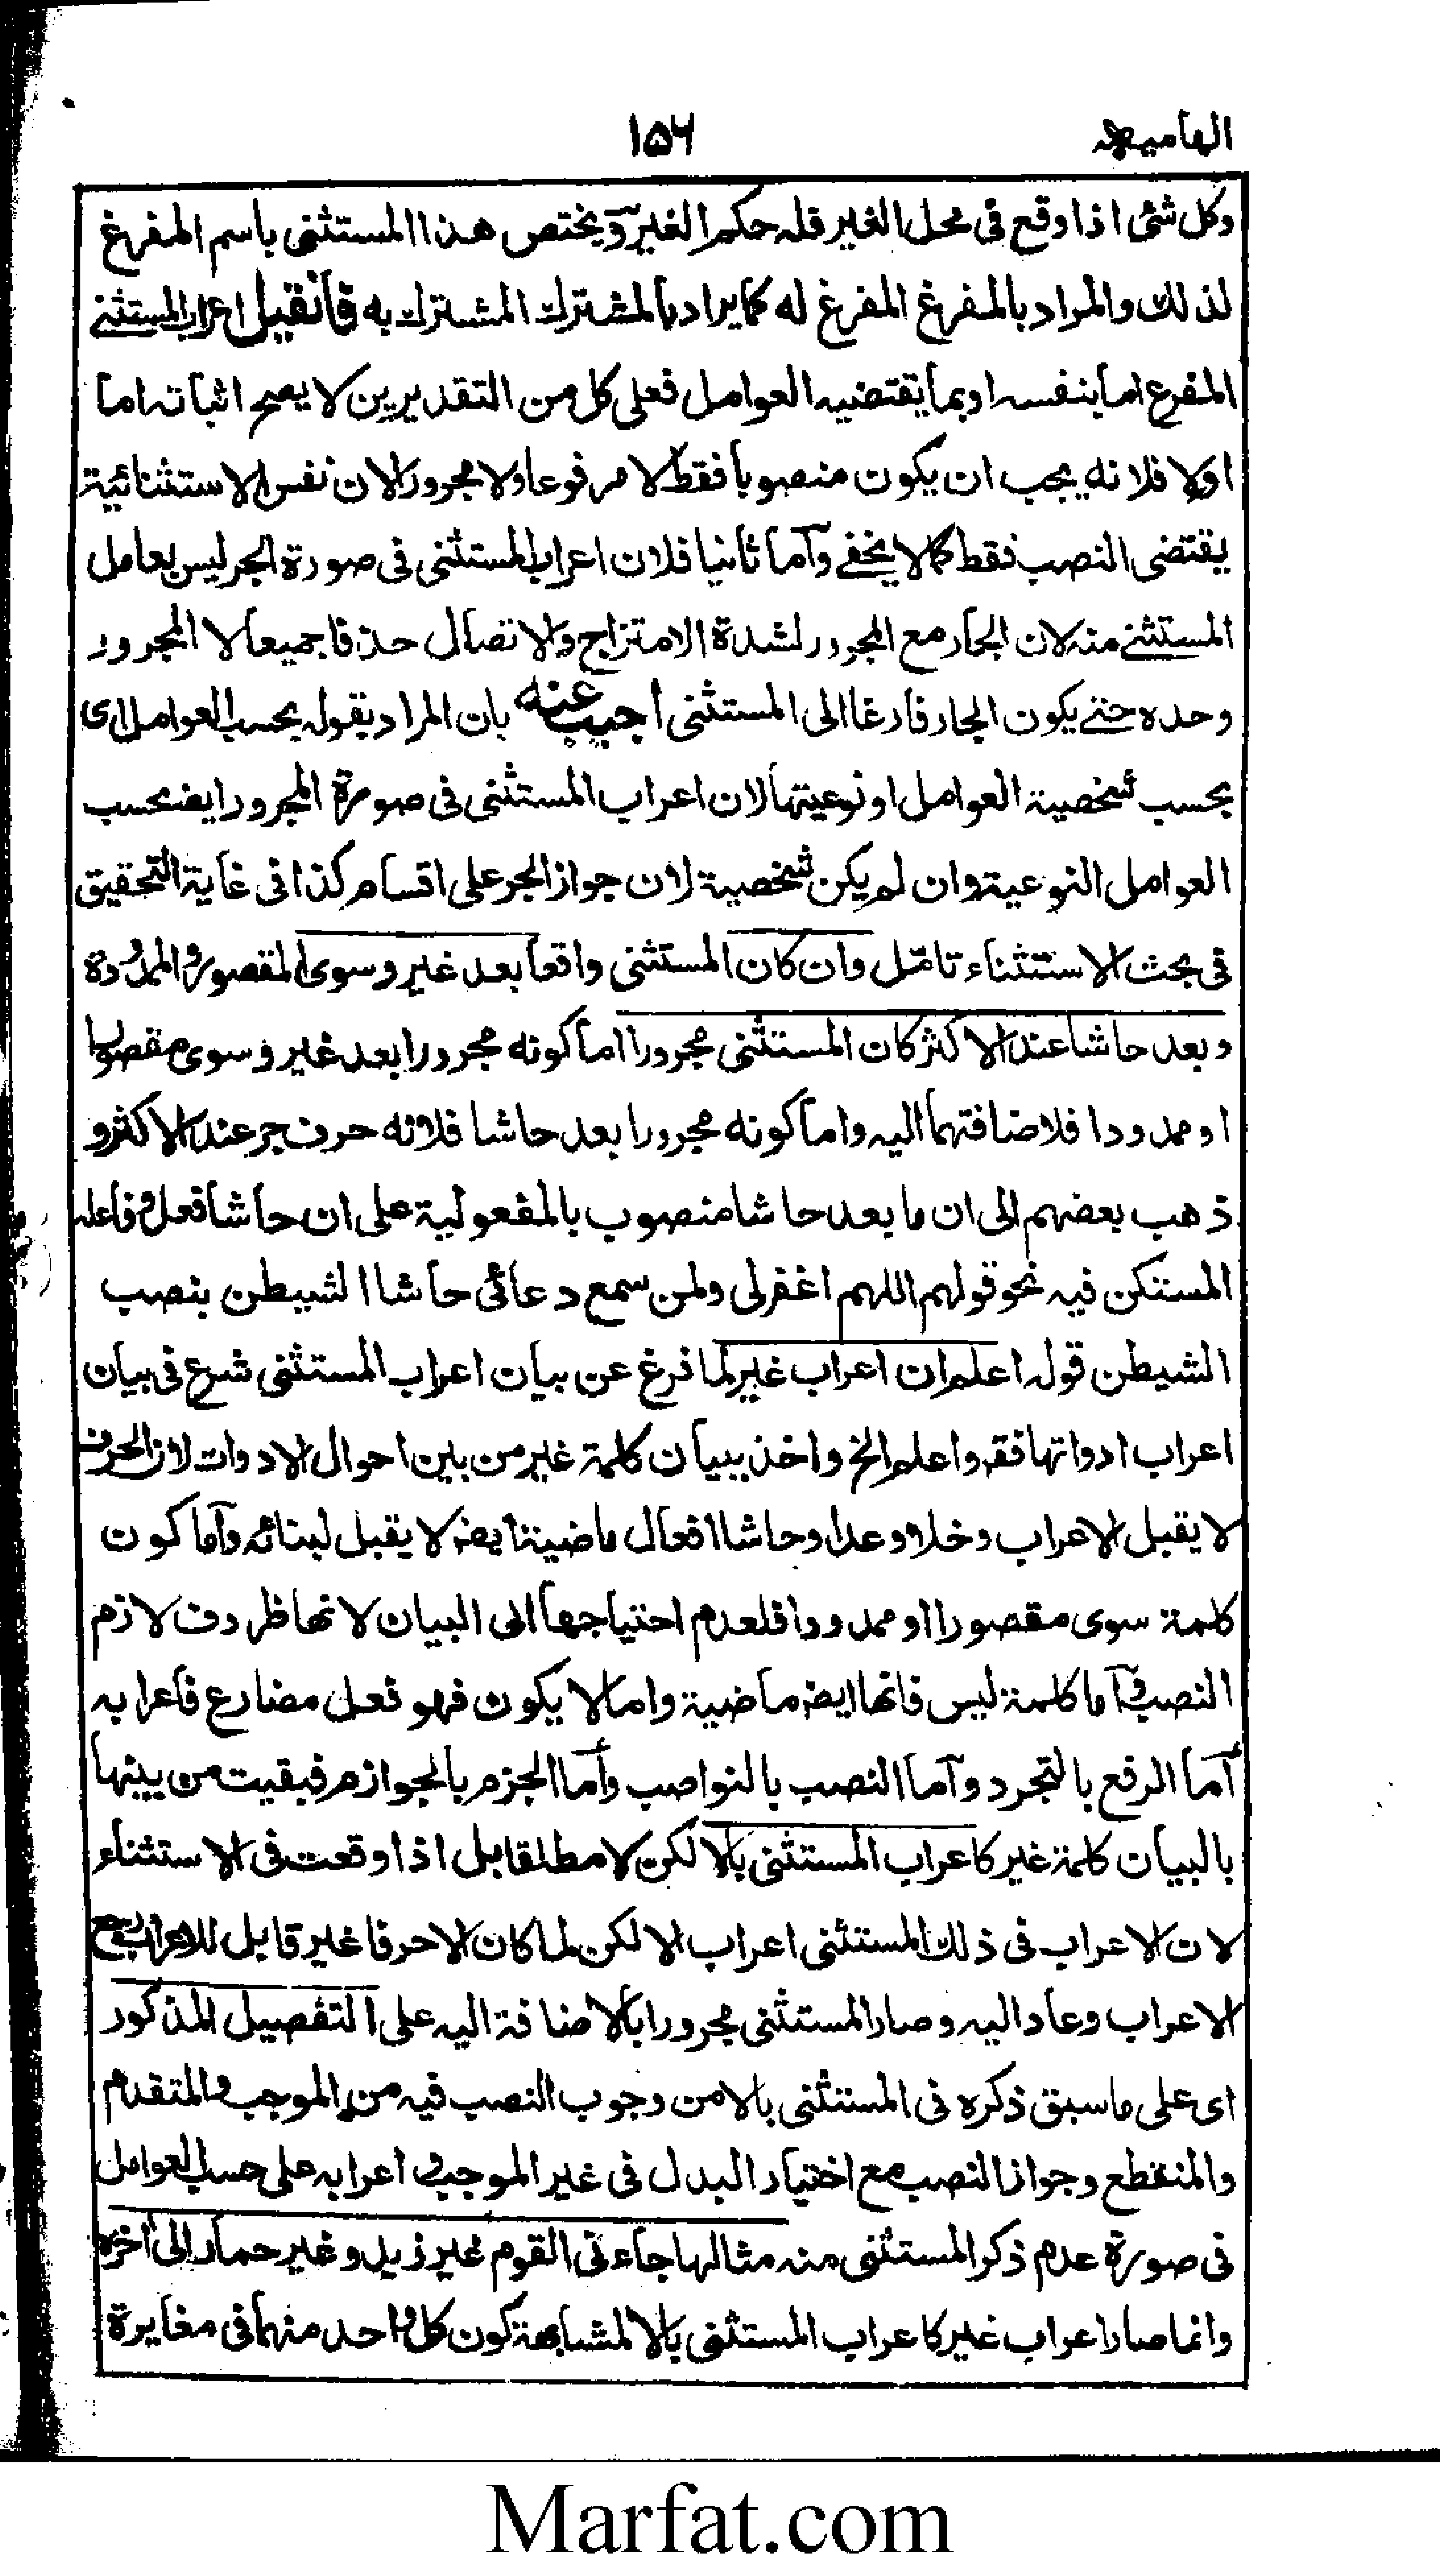 الهاميه ۱۵۶
وكل شئ اذا وقع فى محل الغير فله حكم الغير ويختص هذا المستثنى باسم المفرغ
لذلك والمراد بالمفرغ المفرغ له كما يراد بالمشترك المشترك به فان قيل اعراب المستثنى
المفرع اما بنفسه او بما يقتضيه العوامل فعلى كل من التقديرين لا يصح اثباته اما
اولا فلانه يجب ان يكون منصوبا فقط لا مرفوعا ولا مجرورا لان نفس الاستثنائية
يقتضى النصب فقط كما لا يخفے واما ثانيا فلان اعراب المستثنى فى صورة الجر ليس بعامل
المستثنے منه لان الجار مع المجرور لشدة الامتزاج والاتصال حذفا جميعا لا المجرور
وحده حتے يكون الجار فارغا الى المستثنى اجيب عنه بان المراد بقوله بحسب العوامل اى
بحسب شخصية العوامل او نوعيتها لان اعراب المستثنى فى صورة المجرور ايضا بحسب
العوامل النوعية وان لم يكن شخصية لان جواز الجر على اقسام كذا فى غاية التحقيق
فى بحث الاستثناء تامل وان كان المستثنى واقعا بعد غير وسوى المقصورة والممدودة
وبعد حاشا عند الاكثر كان المستثنى مجرورا اما كونه مجرورا بعد غير وسوى مقصورا
او ممدودا فلاضافتهما اليه واما كونه مجرورا بعد حاشا فلانه حرف جر عند الاكثر و
ذهب بعضهم الى ان ما بعد حاشا منصوب بالمفعولية على ان حاشا فعل وفاعله
المستكن فيه نحو قولهم اللهم اغفرلى ولمن سمع دعائى حاشا الشيطن بنصب
الشيطن قوله اعلم ان اعراب غير لما فرغ عن بيان اعراب المستثنى شرع فى بيان
اعراب ادواتها فقه واعلم الخ واخذ ببيان كلمة غير من بين احوال الادوات لان الحرف
لا يقبل الاعراب وخلا وعدا وحاشا افعال ماضية ايضا لا يقبل لبنائه واما كون
كلمة سوى مقصورا او ممدودا فلعدم احتياجها الى البيان لانها ظروف لازم
النصب واما كلمة ليس فانها ايضا ماضية واما لا يكون فهو فعل مضارع فاعرابه
اما الرفع بالتجرد واما النصب بالنواصب واما الجزم بالجوازم فبقيت من بينها
بالبيان كلمة غير كاعراب المستثنى بالا لكن لا مطلقا بل اذا وقعت فى الاستثناء
لان الاعراب فى ذلك المستثنى اعراب الا لكن لما كان الا حرفا غير قابل للاعراب رجع
الاعراب وعاد اليه وصار المستثنى مجرورا بالاضافة اليه على التفصيل المذكور
اى على ما سبق ذكره فى المستثنى بالا من وجوب النصب فيه من الموجب والمتقدم
والمنقطع وجواز النصب مع اختيار البدل فى غير الموجب و اعرابه على حسب العوامل
فى صورة عدم ذكر المستثنى منه مثالها جاءنى القوم غير زيد وغير حمار الى اخره
وانما صار اعراب غير كاعراب المستثنى بالا لمشابهة كون كل واحد منهما فى مغايرة
Marfat.com